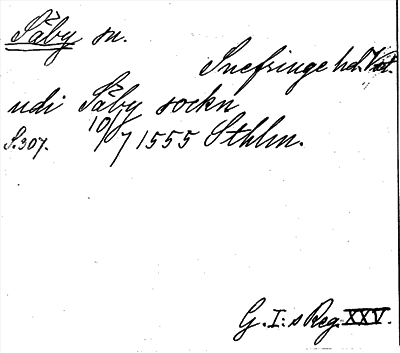 Säby sn.
Snefringe hd. Vstl.
udi Såby sockn
S. 307. 10/7 1555 Sthlm.
G. I: s Reg. XXV.